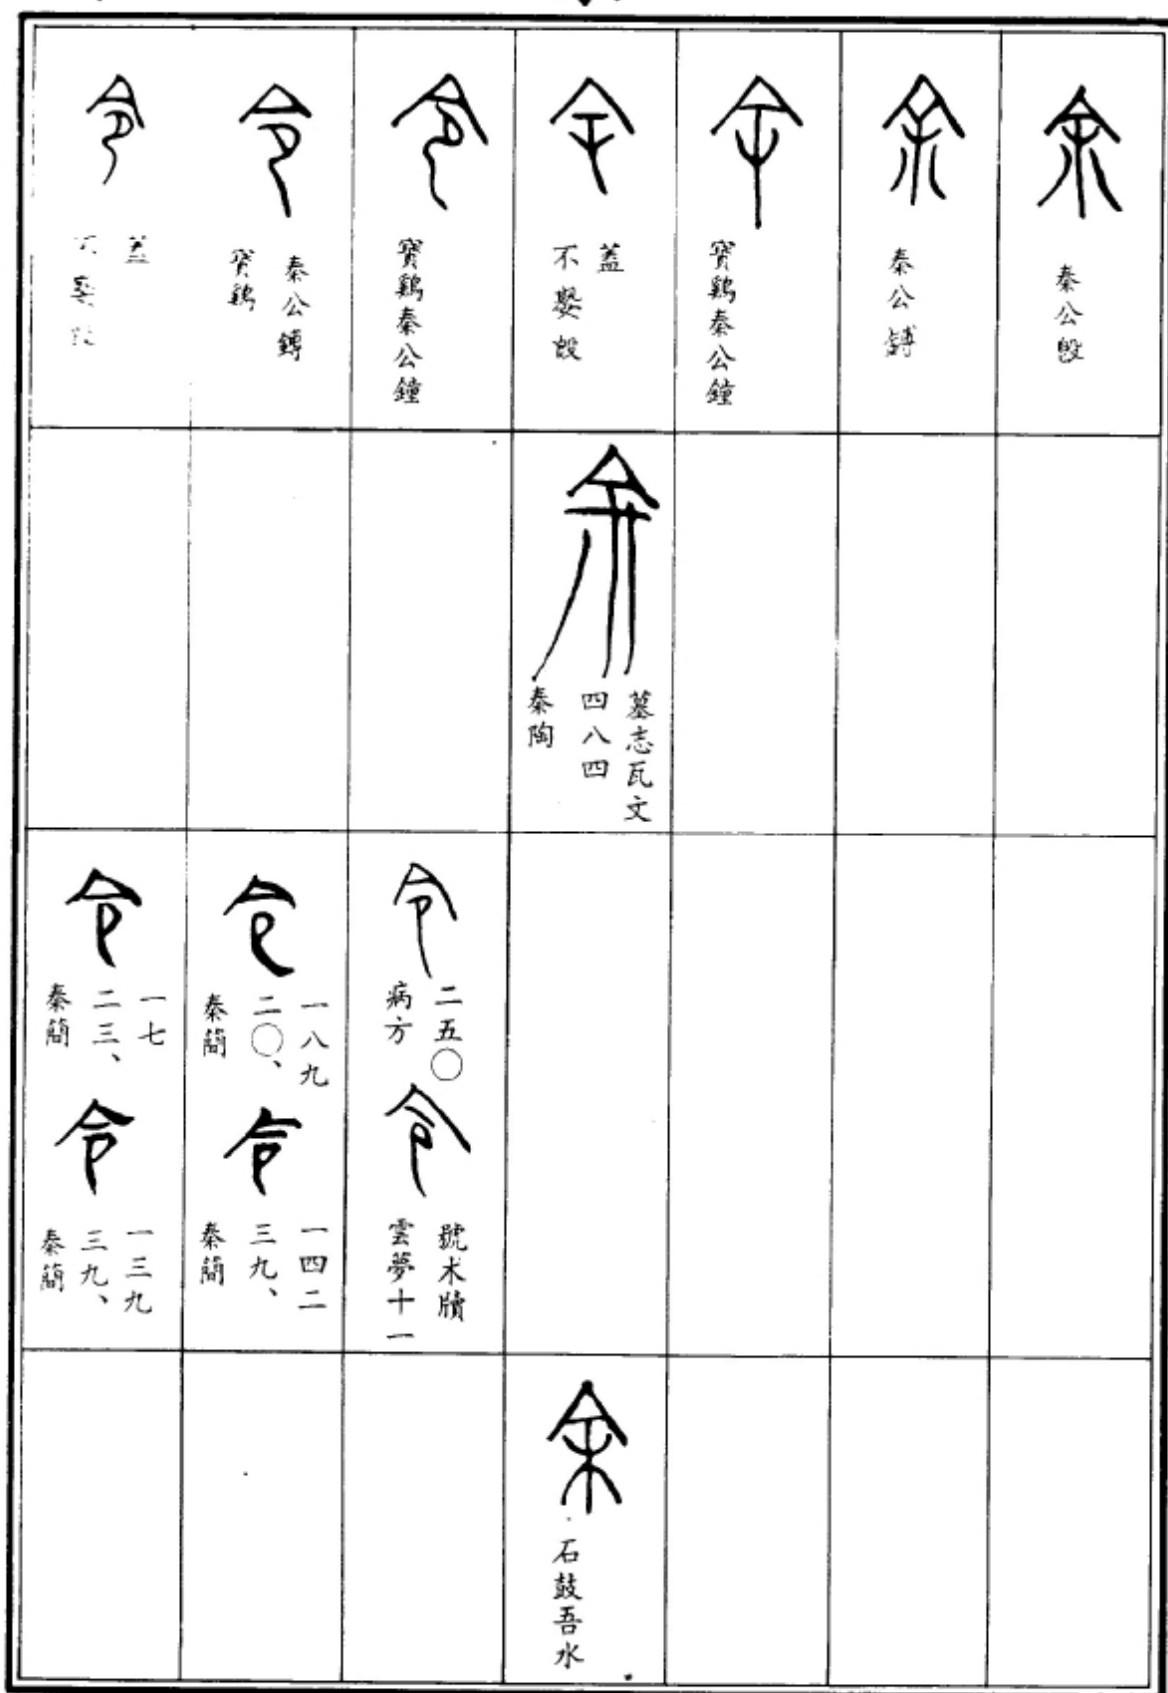 余
秦公𣪘
余
秦公鎛
余
寶鷄秦公鐘
余
不𡢁𣪘
蓋
令
寶鷄秦公鐘
令
寶鷄
秦公鎛
令
蓋
秦陶
四八四
墓志瓦文
令
病方
二五〇
令
雲夢十一
號木牘
令
秦簡
二〇、
一八九
令
秦簡
三九、
一四二
令
秦簡
二三、
一七
令
秦簡
三九、
一三九
余
石鼓吾水